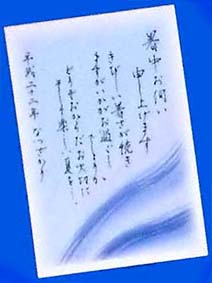 暑中お伺い
申し上げます
きびしい暑さが続き
ますがいかがお過ごし
でしょうか
どうぞおからだお大切に
楽しい夏を
平成二十二年